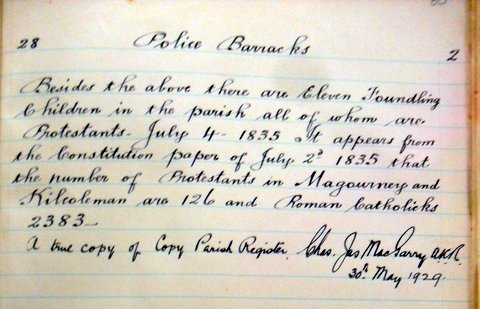 28 Police Barracks 2
Besides the above there are Eleven Foundling
Children in the parish all of whom are
Protestants - July 4 - 1835. It appears from
the Constitution paper of July 2d 1835 that
the number of Protestants in Magourney and
Kilcoleman are 126 and Roman Catholicks
2383
A true copy of Copy Parish Register. Chas. Jas MacGarry
30th May 1929.